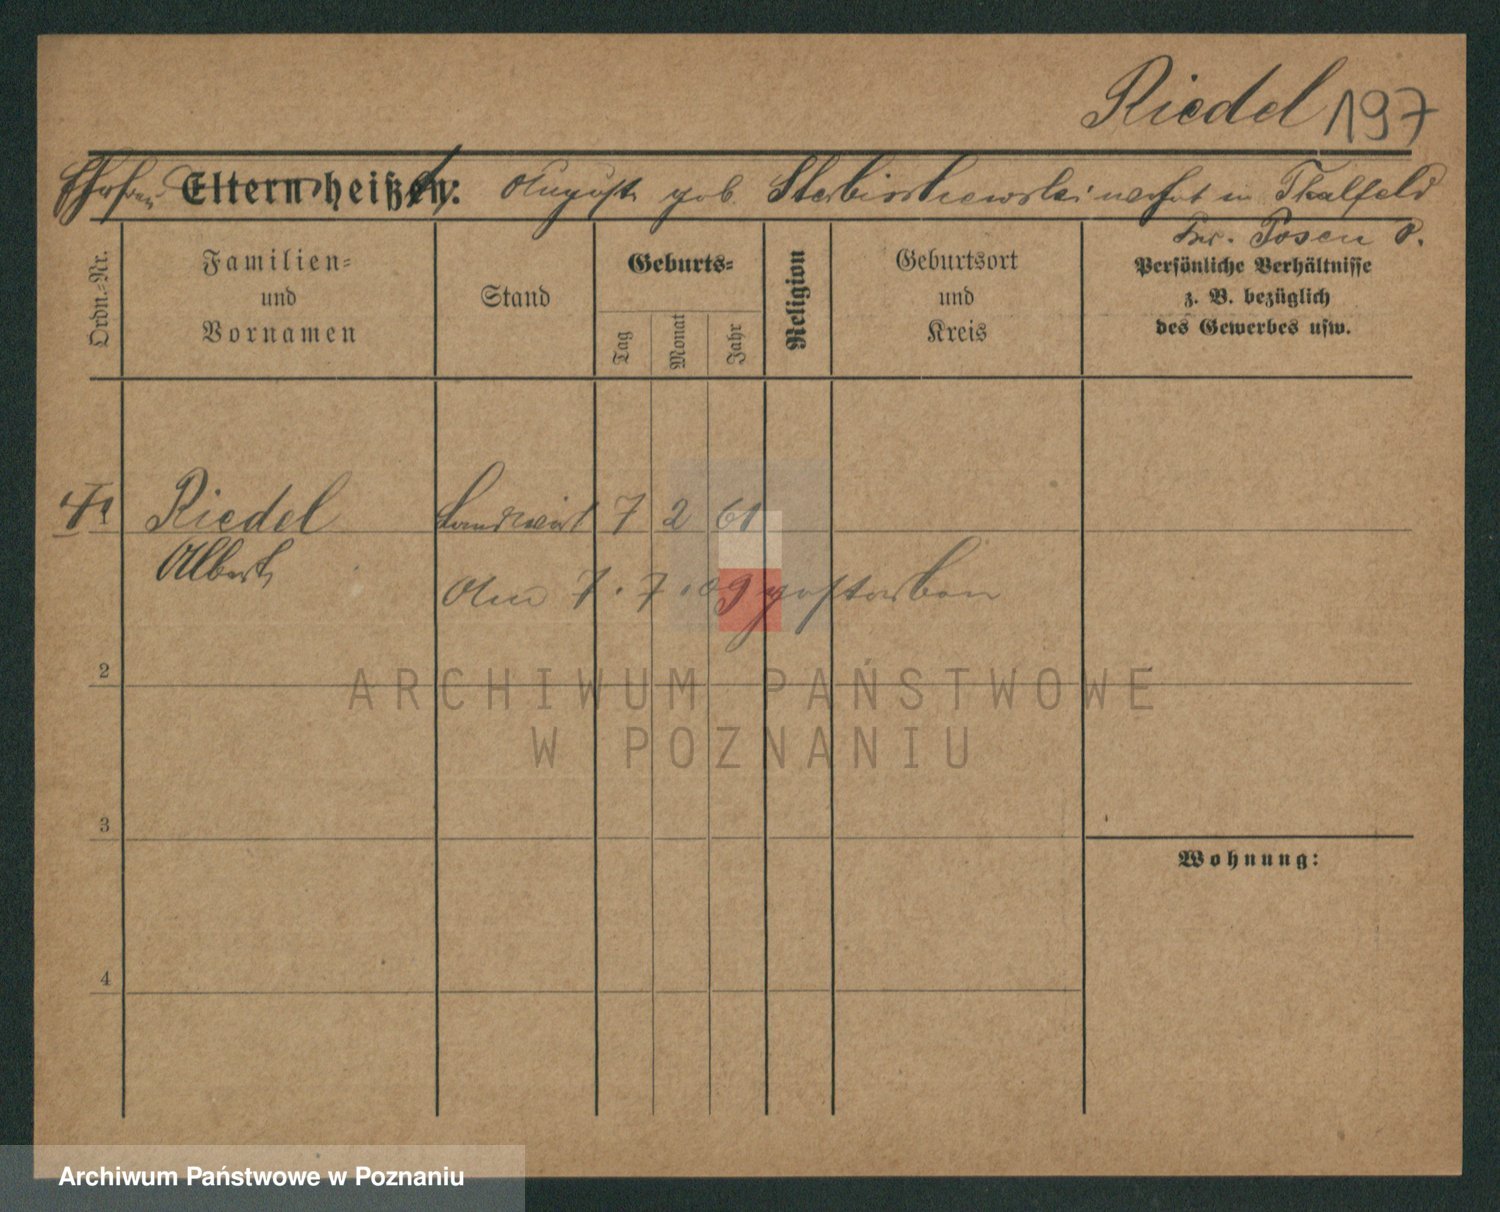 Riedel 197
Ehefrau Eltern heißen: Auguste geb. wohnt in Thalfeld
Kr. Posen O.
Ordn.-Nr.
Familien-
und
Vornamen
Stand
Geburts-
Tag
Monat
Jahr
Religion
Geburtsort
und
Kreis
Persönliche Verhältnisse
z. B. bezüglich
des Gewerbes usw.
1
Riedel Landwirt 7 2 61
Albert
Am 7. 7. 09 gestorben
2
ARCHIWUM PAŃSTWOWE
W POZNANIU
3
Wohnung:
4
Archiwum Państwowe w Poznaniu